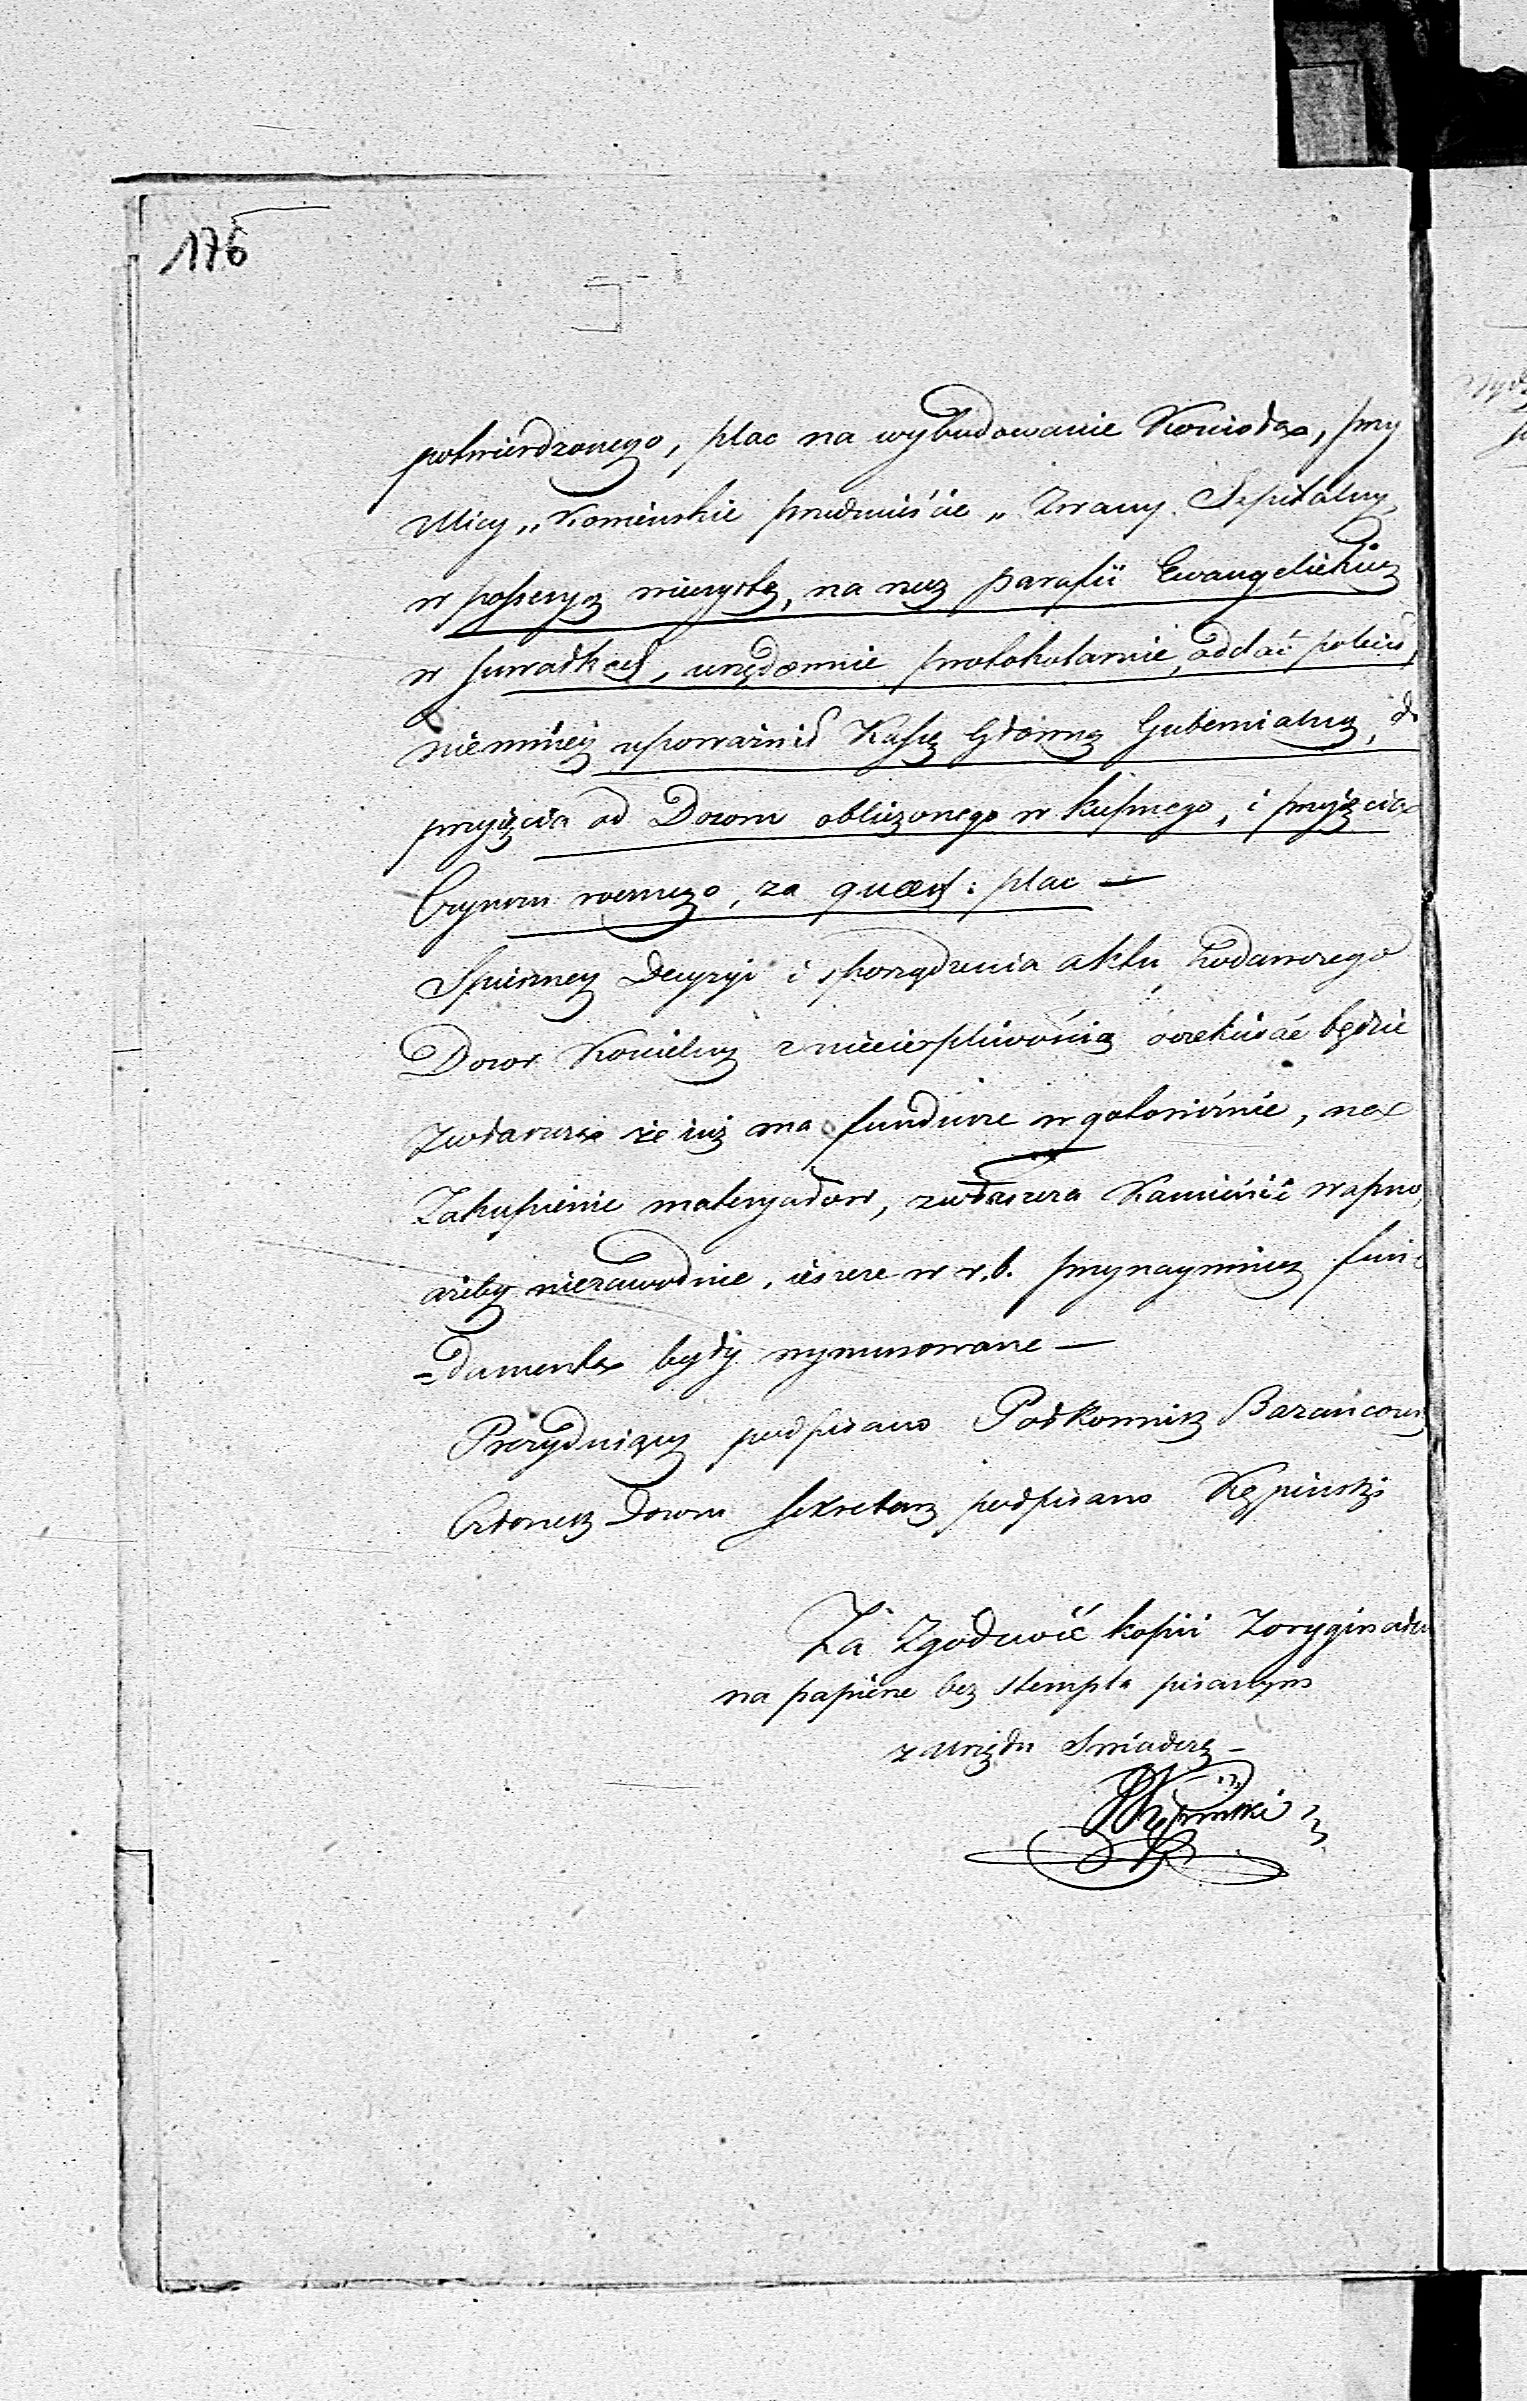 176
potwierdzonego, plac na wybudowanie Kościoła, przy
Ulicy „Kowieńskie przedmieście„ Zwany Szpitalny,
w possesyą wieczystą, na rzecz parafii Ewangelickiey
w Suwałkach, urzędownie protokularnie, oddać polecił,
niemniey upoważnił Kassę Główną Gubernialną, do
przyięcia od Dozoru obliczonego w kupnego, i przyięcia
Czynszu rocznego, za quest: plac —
Spieszney Decyzyi i sporządzenia aktu, podawczego
Dozor Kościelny z niecierpliwością oczekiwać będzie
Zwłaszcza że iuż ma fundusze w gotowiźnie, na
Zakupienie materyałow, zwłaszcza Kamieni i wapno,
ażeby niezawodnie, ieszcze w r. b. przynaymniey fun-
=damenta były wymurowane —
Prezyduiący podpisano Pułkownik
Członek Dozoru Sekretarz podpisano Kępiński
Za Zgodność kopii Zoryginału
na papierze bez stempla pisanym
z Urzędu Swiadczę —
Kępiński